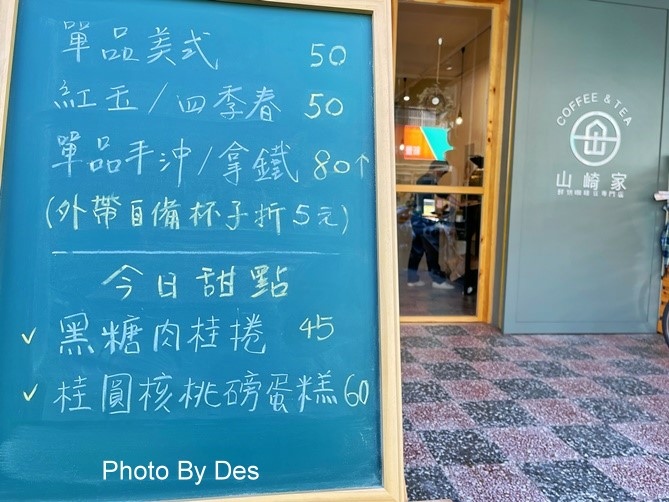 單品美式 50
紅玉/四季春 50
單品手沖/拿鐵 80↑
(外帶自備杯子折5元)
今日甜點
✓ 黑糖肉桂捲 45
✓ 桂圓核桃磅蛋糕 60
Photo By Des
COFFEE & TEA
山崎家